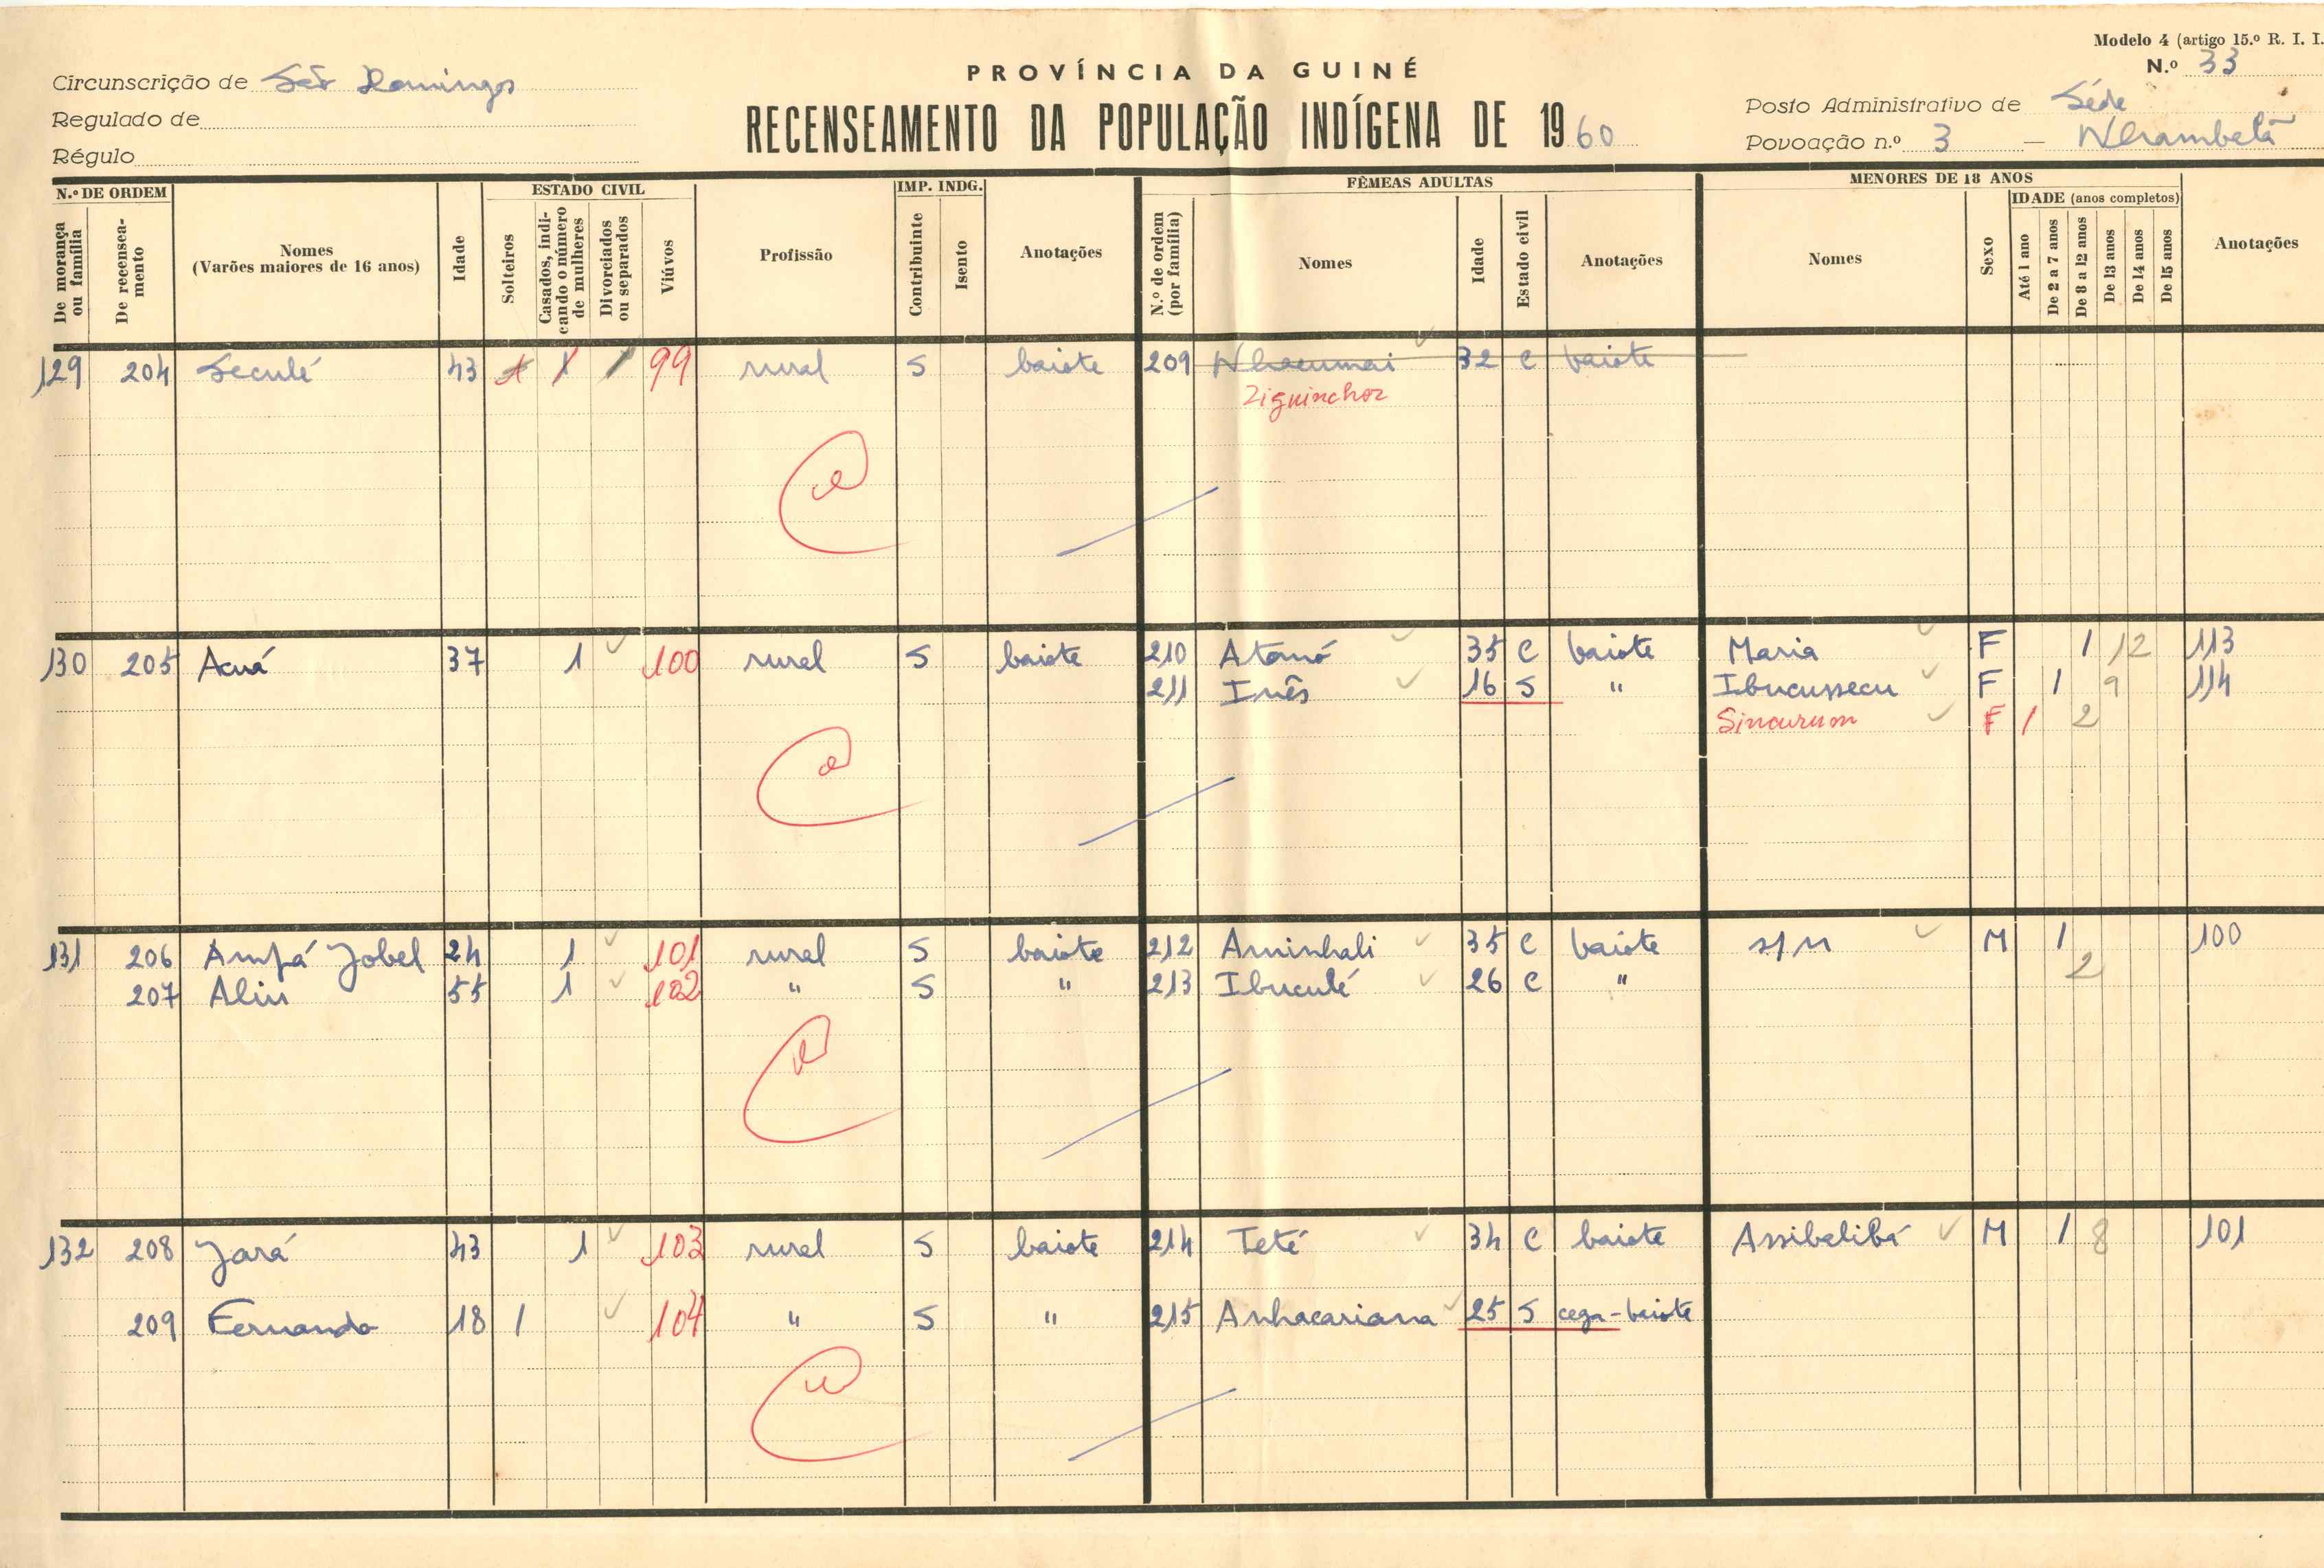 Modelo 4 (artigo 15.º R. I. I.
N.º 33
PROVÍNCIA DA GUINÉ
RECENSEAMENTO DA POPULAÇÃO INDÍGENA DE 1960
Circunscrição de São Domingos
Regulado de
Régulo
Posto Administrativo de Séde
Povoação n.º 3 — Nhambelã
N.º DE ORDEM ESTADO CIVIL IMP. INDG. FÊMEAS ADULTAS MENORES DE 18 ANOS
De morança ou família
De recenseamento
Nomes
(Varões maiores de 16 anos)
Idade
Solteiros
Casados, indicando o número de mulheres
Divorciados ou separados
Viúvos
Profissão
Contribuinte
Isento
Anotações
N.º de ordem (por família)
Nomes
Idade
Estado civil
Anotações
Nomes
Sexo
IDADE (anos completos)
Até 1 ano
De 2 a 7 anos
De 8 a 12 anos
De 13 anos
De 14 anos
De 15 anos
Anotações
129 204 Seculé 43 1 1 99 rural S baiote 209 Nhacumai 32 C baiote
Ziguinchor
130 205 Acuá 37 1 100 rural S baiote 210 Atomó 35 C baiote Maria F 1 12 113
211 Inês 16 S " Ibucussecu F 1 9 114
Sincurum F 1 2
131 206 Ampá Jobel 24 1 101 rural S baiote 212 Aminhali 35 C baiote s/n M 1 2 100
207 Aliu 55 1 102 " S " 213 Ibuculé 26 C "
132 208 Jará 43 1 103 rural S baiote 214 Teté 34 C baiote Assibalibá M 1 8 101
209 Fernando 18 1 104 " S " 215 Anhacariana 25 S cega-baiote